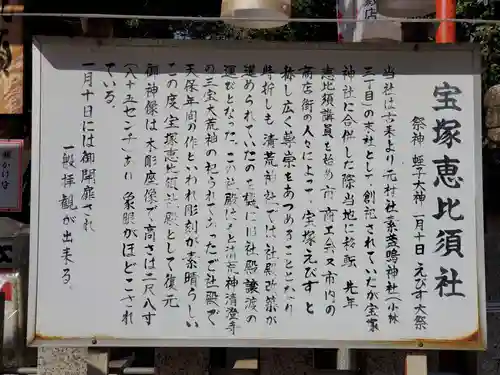 宝塚恵比須社
祭神 蛭子大神 一月十日 えびす大祭
当社は古来より元村社(素盞嗚神社(小林
三丁目)の末社として創祀されていたが宝塚
神社に合併した際当地に移転 先年
恵比須講員を始め市、商工会、又市内の
商店街の人々によって、宝塚えびす、と
称し広く尊崇をあつめることになり
時折しも、清荒神社では社殿改築が
進められていたのを機に旧社殿譲渡の
運びとなった。この社殿はもと清荒神清澄寺
の三宝大荒神の祀られてあったご社殿で
天保年間の作といわれ彫刻が素晴らしい
この度、宝塚恵比須社殿として復元
御神像は、木彫座像で高さは二尺八寸
(八十五センチ)あり 象眼がほどこされ
ている。
一月十日には御開扉され
一般拝観が出来る。